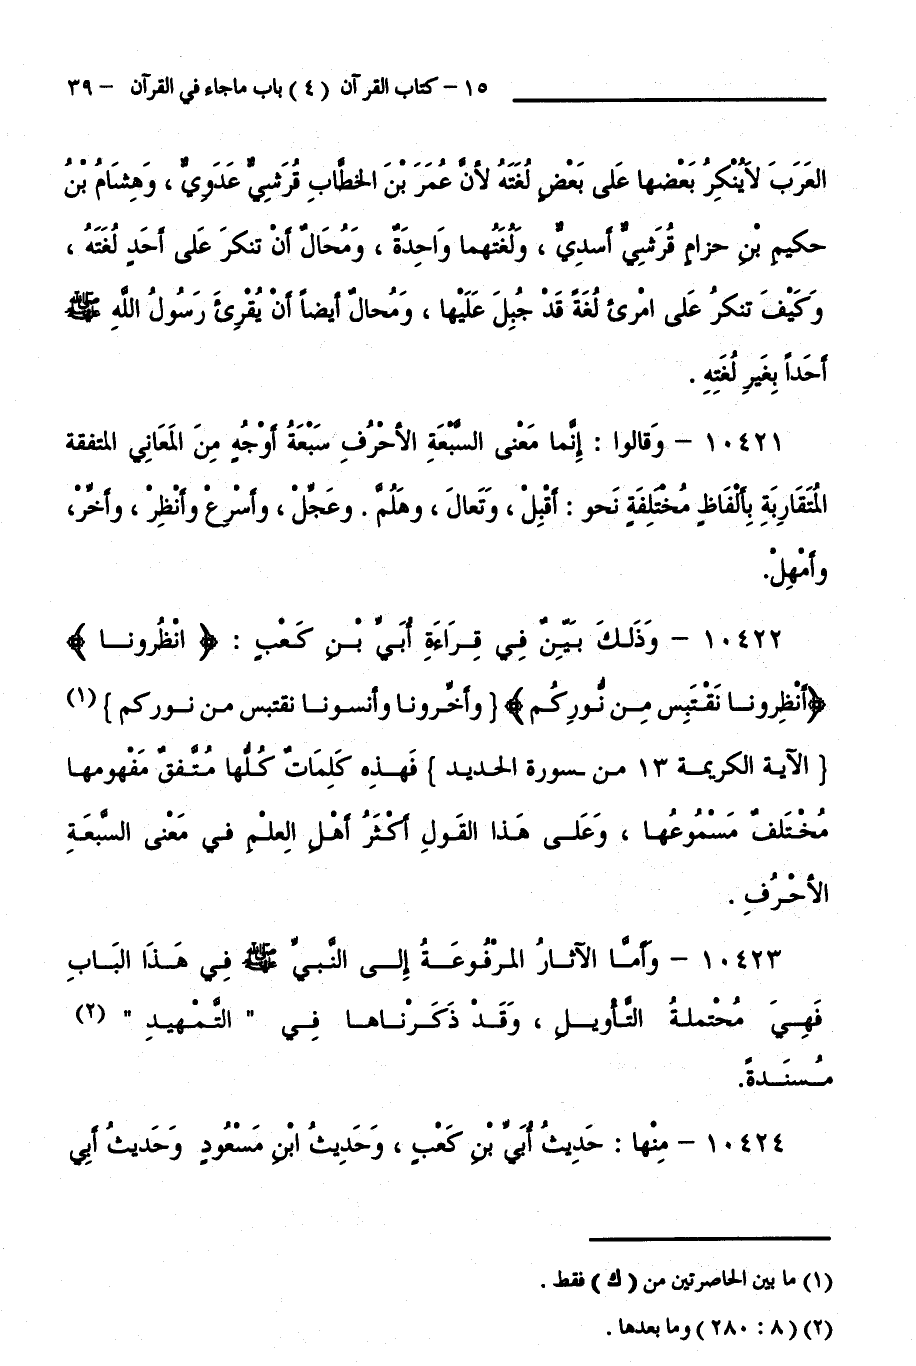 ١٥ – كتاب القرآن ( ٤ ) باب ماجاء في القرآن – ٣٩
العَرَبَ لاَيُنْكِرُ بَعْضها عَلى بَعْضٍ لُغَتَهُ لأنَّ عُمَرَ بْنَ الخطَّابِ قُرَشِيٌّ عَدَوِيٌّ ، وَهِشَامُ بْنُ
حكيمِ بْنِ حزامٍ قُرَشِيٌّ أسدِيٌّ ، وَلُغَتُهما وَاحِدَةٌ ، وَمُحَالٌ أنْ تنكرَ عَلى أحَدٍ لُغَتَهُ ،
وَكَيْفَ تنكرُ عَلى امْرئ لُغَةً قَدْ جبِلَ عَلَيْها ، ومُحالٌ أيضاً أنْ يُقْرِئَ رَسُولُ اللَّهِ ﷺ
أحَداً بِغَيرِ لُغَتِهِ .
١٠٤٢١ – وَقالوا : إنَّما مَعْنى السَّبْعَةِ الأحْرُفِ سَبْعَةُ أوْجُهٍ مِنَ المَعَاني المتفقة
المُتَقَاربَةِ بِألْفَاظٍ مُخْتَلِفَةٍ نَحو : أقْبِلْ ، وتَعالَ ، وهَلُمَّ . وعَجِّلْ ، وأسْرِعْ وأنْظِرْ ، وأخِّرْ،
وأمْهِلْ.
١٠٤٢٢ – وَذَلكَ بَيِّنٌ فِي قِرَاءَةِ أُبَيِّ بْنِ كَعْبٍ : ﴿ انْظُرونا ﴾
﴿أنْظِرونا نَقْتَبِس مِن نُّورِكُم ﴾ { وأخِّرونا وأنسونا نقتبس من نوركم } (١)
{ الآية الكريمة ١٣ من سورة الحديد } فَهذِه كَلِمَاتٌ كُلُّها مُتَّفقٌ مَفْهومها
مُخْتَلَفٌ مَسْمُوعُها ، وَعَلى هَذا القَولِ أكْثَرُ أهْلِ العِلْمِ في مَعْنى السَّبْعَةِ
الأحْرُفِ .
١٠٤٢٣ – وَأمَّا الآثارُ المرْفُوعَةُ إلى النَّبيِّ ﷺ فِي هَذَا البَابِ
فَهِيَ مُحْتملةُ التَّأويلِ ، وَقَدْ ذَكَرْناها فِي " التَّمْهيدِ " (٢)
مُسنَدةً.
١٠٤٢٤ – مِنْها : حَدِيثُ أُبَيِّ بْنِ كَعْبٍ ، وَحَدِيثُ ابْنِ مَسْعُودٍ وَحَديثُ أبِي
(١) ما بين الحاصرتين من ( ك ) فقط .
(٢) ( ٨ : ٢٨٠ ) وما بعدها .